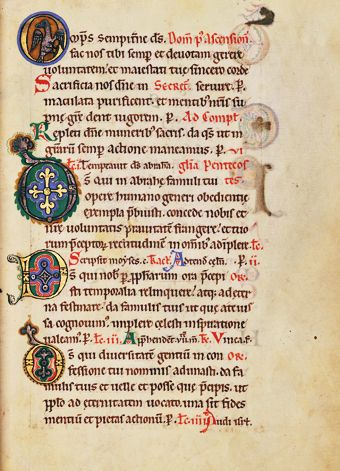 O mps sempit̄ne d̄s. Dom̄ p̄ Ascension̄
fac nos tibi semp̄ et deuotam gerere
uoluntatem. et maiestati tue sincero corde
Sacrificia nos dn̄e in Secret̄. seruire. P.
maculata purificent. et mentib; nr̄is su
pne gr̄e dent uigorem. P. Ad Compl̄.
Repleti dn̄e munerib; sacris. da q̄s ut in
gr̄arum semp̄ actione maneamus. P. vi
Lc̄. Temptauit ds̄ abraha. Glia Pentecos
D s̄ qui in abrahe famuli tui tes
opere humano generi obedientie
exempla p̄buisti. concede nobis et
nr̄e uoluntatis prauitatem frangere. et tuo
rum p̄ceptor̄ rectitudinem in om̄ib; adīplere. Lc̄.
Scripsit moyses. c. Tract̄. Attend celū. P. ii
D s̄ qui nob̄ p̄ p̄pharum ora p̄cepi or̄.
sti temporalia relinquere. atq; ad eter
na festinare. da famulis tuis ut que a te ius
sa cognouim̄. implere celesti inspiratione
ualeam̄. P. Lc̄. iii. Apphendert̄ vii. m̄. Tc̄. Vinea f.
D s̄ qui diuersitatē gentium in con or̄.
fessione tui nominis adunasti. da fa
mulis tuis et uelle et posse que p̄cipis. ut
pp̄lo ad eternitatem uocato. una sit fides
mentiū et pietas actionū. P. Lc̄. iiii. Audi isr̄l.